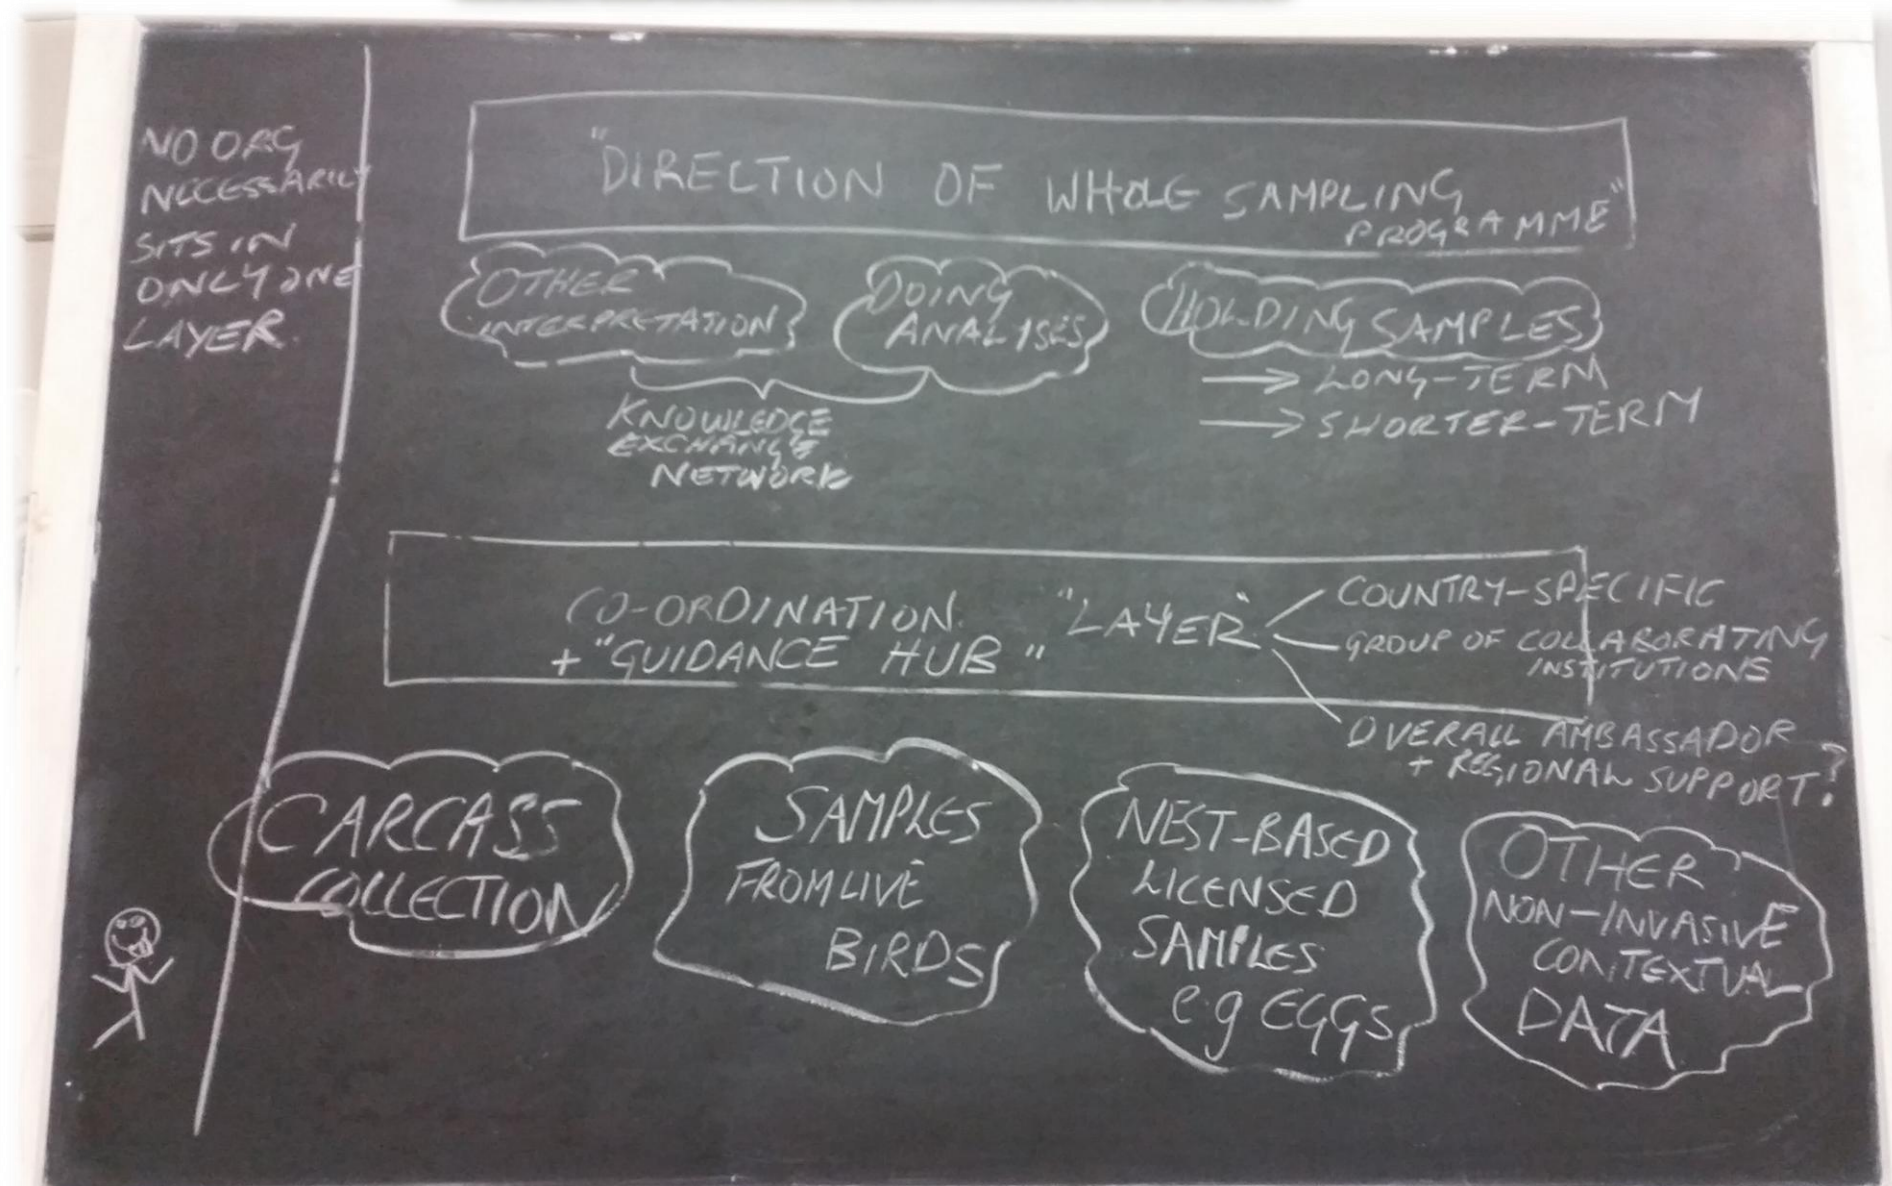 NO ORG
NECESSARILY
SITS IN
ONLY ONE
LAYER.
"DIRECTION OF WHOLE SAMPLING
PROGRAMME"
OTHER
INTERPRETATION
DOING
ANALYSES
HOLDING SAMPLES
→ LONG-TERM
→ SHORTER-TERM
KNOWLEDGE
EXCHANGE
NETWORK
CO-ORDINATION
+ "GUIDANCE HUB"
"LAYER"
COUNTRY-SPECIFIC
GROUP OF COLLABORATING
INSTITUTIONS
OVERALL AMBASSADOR
+ REGIONAL SUPPORT?
CARCASS
COLLECTION
SAMPLES
FROM LIVE
BIRDS
NEST-BASED
LICENSED
SAMPLES
e.g EGGS
OTHER
NON-INVASIVE
CONTEXTUAL
DATA